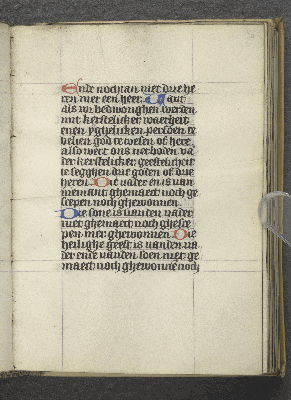 Ende nochtan niet drie he
ren mer een heer. Want
als wi bedwonghen werden
mit kerstelicker waerheit
enen ygheliken persoen te
belien god te wesen of here,
also wert ons verboden va
der kersteliker geestelicheit
te segghen drie goden of drie
heren. Die vader en is van
niemant ghemaect noch ge
scepen noch ghewonnen
Die sone is vanden vader
niet ghemaect noch ghesce
pen mer ghewonnen. Die
heilighe geest is vanden va
der ende vanden soen niet ge
maect noch ghewonnen noch